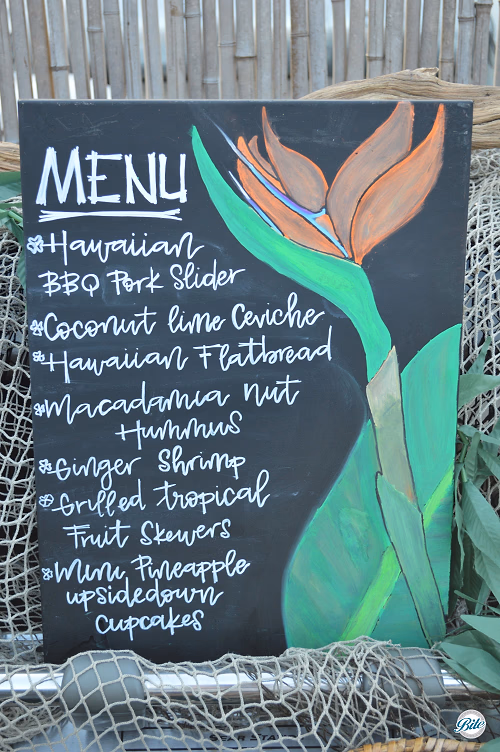 MENU
Hawaiian
BBQ Pork Slider
Coconut lime Ceviche
Hawaiian Flatbread
Macadamia nut
Hummus
Ginger Shrimp
Grilled tropical
Fruit Skewers
Mini Pineapple
upsidedown
Cupcakes
Bite